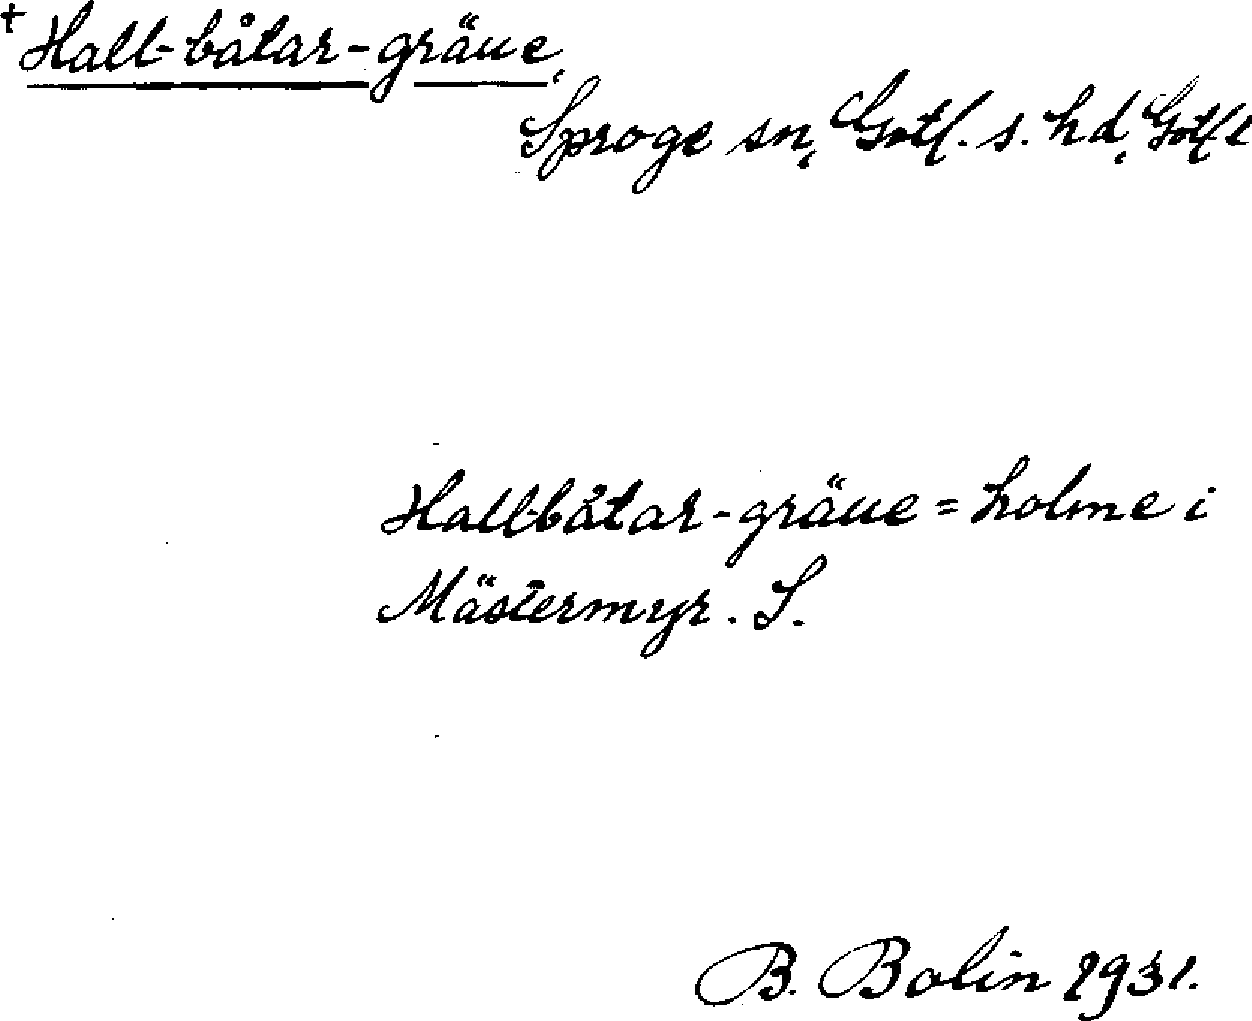 +Hall-båtar-gräue,
Sproge sn, Gotl. s. hd, Gotl. l
Hallbåtar-gräue = holme i
Mästermyr. S.
B. Bolin 1931.